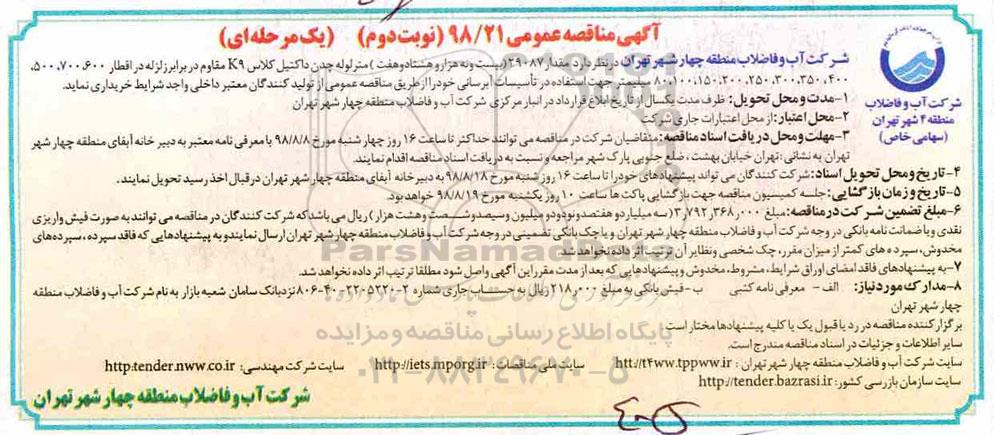 آگهی مناقصه عمومی ۹۸/۲۱ (نوبت دوم) (یک مرحله ای)
شرکت آب و فاضلاب منطقه ۴ شهر تهران
(سهامی خاص)
شرکت آب و فاضلاب منطقه چهار شهر تهران در نظر دارد مقدار ۲۹۰۸۷ (بیست و نه هزار و هشتاد و هفت) متر لوله چدن داکتیل کلاس K9 مقاوم در برابر زلزله در اقطار ۵۰۰،۷۰۰،۶۰۰،
۴۰۰، ۳۵۰، ۳۰۰، ۲۵۰، ۲۰۰، ۱۵۰، ۱۰۰، ۸۰ میلیمتر جهت استفاده در تأسیسات آبرسانی خود را از طریق مناقصه عمومی از تولید کنندگان معتبر داخلی واجد شرایط خریداری نماید.
۱-مدت و محل تحویل: ظرف مدت یکسال از تاریخ ابلاغ قرارداد در انبار مرکزی شرکت آب و فاضلاب منطقه چهار شهر تهران
۲-محل اعتبار: از محل اعتبارات جاری شرکت
۳-مهلت و محل دریافت اسناد مناقصه: متقاضیان شرکت در مناقصه می توانند حداکثر تا ساعت ۱۶ روز چهار شنبه مورخ ۹۸/۸/۸ با معرفی نامه معتبر به دبیر خانه آبفای منطقه چهار شهر
تهران به نشانی: تهران خیابان بهشت، ضلع جنوبی پارک شهر مراجعه و نسبت به دریافت اسناد مناقصه اقدام نمایند.
۴-تاریخ و محل تحویل اسناد: شرکت کنندگان می تواند پیشنهادهای خود را تا ساعت ۱۶ روز شنبه مورخ ۹۸/۸/۱۸ به دبیر خانه آبفای منطقه چهار شهر تهران در قبال اخذ رسید تحویل نمایند.
۵-تاریخ و زمان بازگشایی: جلسه کمیسیون مناقصه جهت بازگشایی پاکت ها ساعت ۱۰ روز یکشنبه مورخ ۹۸/۸/۱۹ خواهد بود.
۶-مبلغ تضمین شرکت در مناقصه: مبلغ ۳٫۷۹۲٫۳۶۸٫۰۰۰ (سه میلیارد و هفتصد و نود و دو میلیون و سیصد و شصت و هشت هزار) ریال می باشد که شرکت کنندگان در مناقصه می توانند به صورت فیش واریزی
نقدی و یا ضمانت نامه بانکی در وجه شرکت آب و فاضلاب منطقه چهار شهر تهران و یا چک بانکی تضمینی در وجه شرکت آب و فاضلاب منطقه چهار شهر تهران ارسال نمایند و به پیشنهادهایی که فاقد سپرده، سپرده های
مخدوش، سپرده های کمتر از میزان مقرر، چک شخصی و نظایر آن ترتیب اثر داده نخواهد شد.
۷-به پیشنهادهای فاقد امضای اوراق شرایط، مشروط، مخدوش و پیشنهادهایی که بعد از مدت مقرر این آگهی واصل شود مطلقا ترتیب اثر داده نخواهد شد.
۸-مدارک مورد نیاز: الف - معرفی نامه کتبی ب - فیش بانکی به مبلغ ۲۱۸٫۰۰۰ ریال به حساب جاری شماره ۲-۲۲۰۵۲۲۰-۴۰-۸۰۶ نزد بانک سامان شعبه بازار به نام شرکت آب و فاضلاب منطقه
چهار شهر تهران
برگزار کننده مناقصه در رد یا قبول یک یا کلیه پیشنهادها مختار است.
سایر اطلاعات و جزئیات در اسناد مناقصه مندرج است.
سایت شرکت آب و فاضلاب منطقه چهار شهر تهران: htt://t4ww.tppww.ir سایت ملی مناقصات: http://iets.mporg.ir سایت شرکت مهندسی: http:tender.nww.co.ir
سایت سازمان بازرسی کشور: http://tender.bazrasi.ir
شرکت آب و فاضلاب منطقه چهار شهر تهران
ParsNamadData
پایگاه اطلاع رسانی مناقصه و مزایده
۰۲۱-۸۸۳۴۹۶۷۰-۵